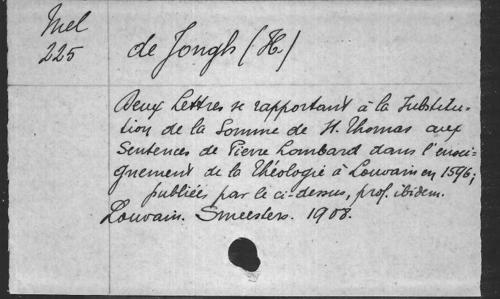 Mel
225
de Jongh (H)
Deux Lettres se rapportant à la substitu-
tion de la Somme de St. Thomas aux
Sentences de Pierre Lombard dans l'ensei-
gnement de la Théologie à Louvain en 1596;
publiées par le ci-dessus, prof. ibidem.
Louvain. Smeesters. 1908.